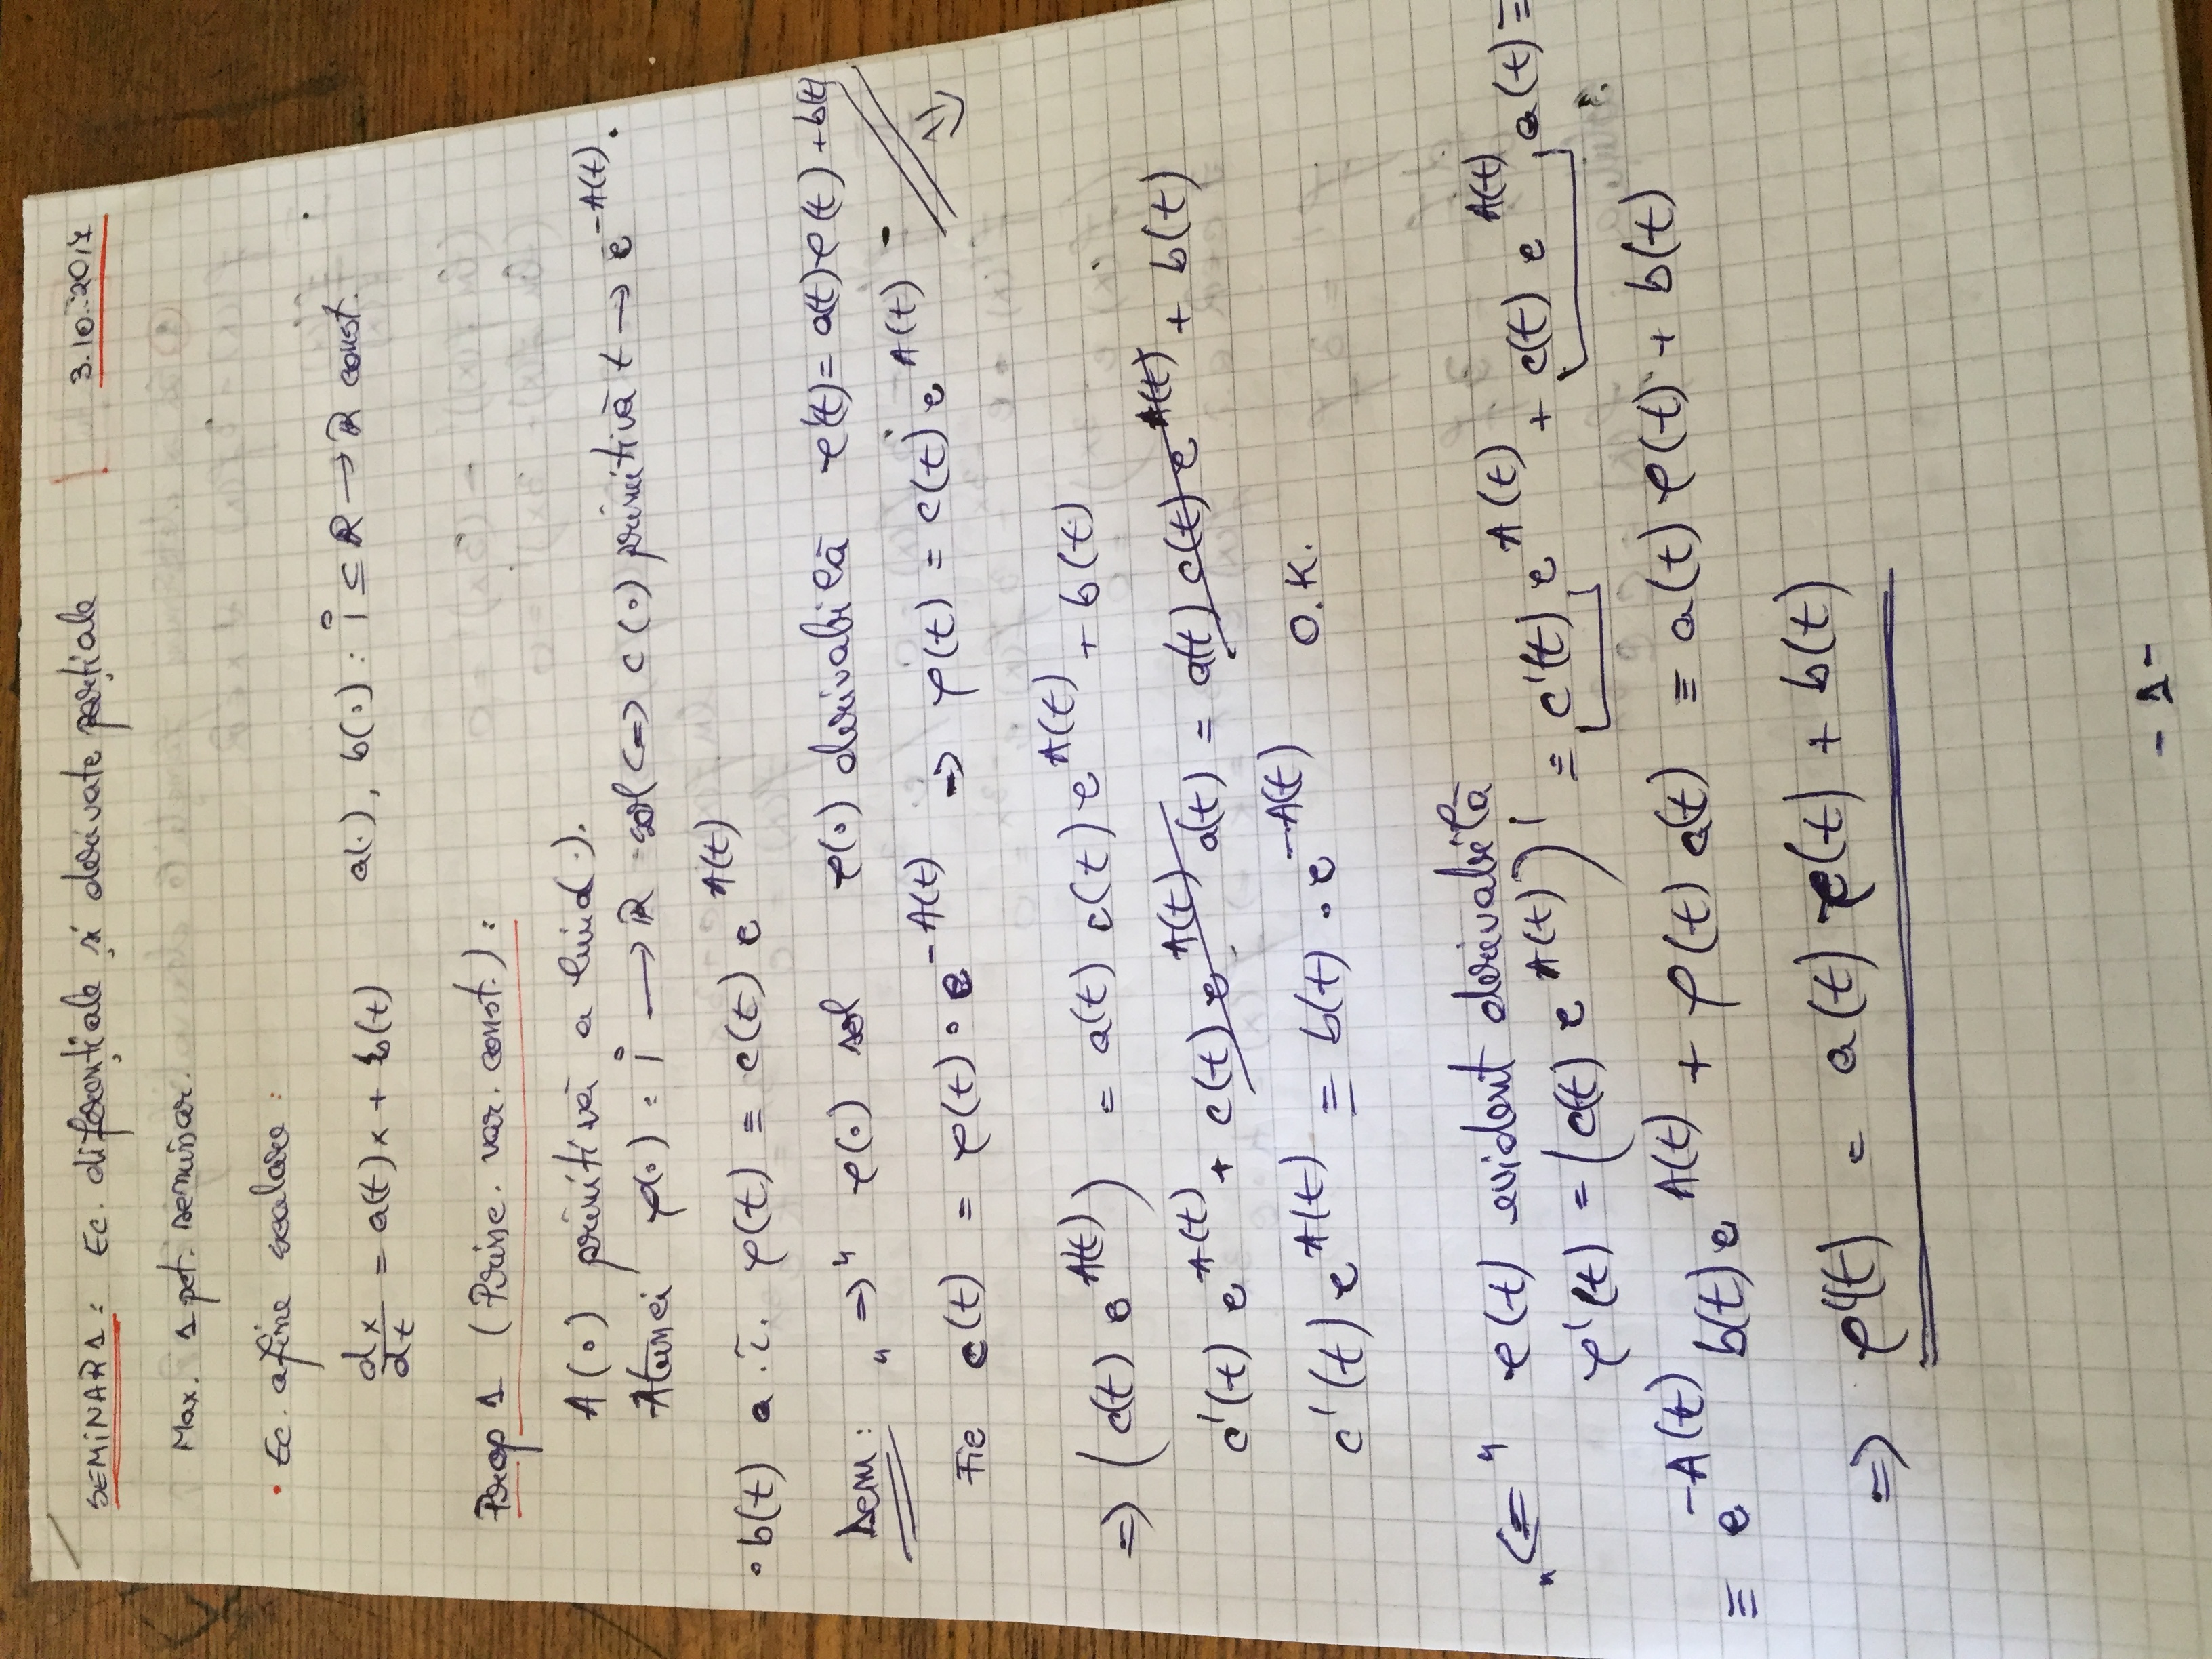 SEMINAR 1: Ec. diferențiale și derivate parțiale ! 3.10.2017
Max. 1 pct. seminar.
• Ec. afine scalare:
dx/dt = a(t)x + b(t) a(·), b(·): I ⊆ R → R const.
Prop 1 (Princ. var. const.):
A(·) primitivă a lui a(·).
Atunci φ(·): I → R sol <=> c(·) primitivă t → e^{-A(t)}.
· b(t) a.î. φ(t) ≡ c(t) e^{A(t)}
Dem: „=>" φ(·) sol φ(·) derivabilă φ'(t) = a(t)φ(t) + b(t)
Fie c(t) = φ(t) · e^{-A(t)} => φ(t) = c(t) e^{A(t)} =>
=> (c(t) e^{A(t)}) = a(t) c(t) e^{A(t)} + b(t)
c'(t) e^{A(t)} + c(t) e^{A(t)} a(t) = a(t) c(t) e^{A(t)} + b(t)
c'(t) e^{A(t)} ≡ b(t) · e^{-A(t)} O.K.
„<=" φ(t) evident derivabilă
φ'(t) = (c(t) e^{A(t)})' ≡ c'(t) e^{A(t)} + c(t) e^{A(t)} a(t) ≡
≡ e^{-A(t)} b(t) e^{A(t)} + φ(t) a(t) ≡ a(t) φ(t) + b(t)
=> φ'(t) = a(t) φ(t) + b(t)
- 1 -